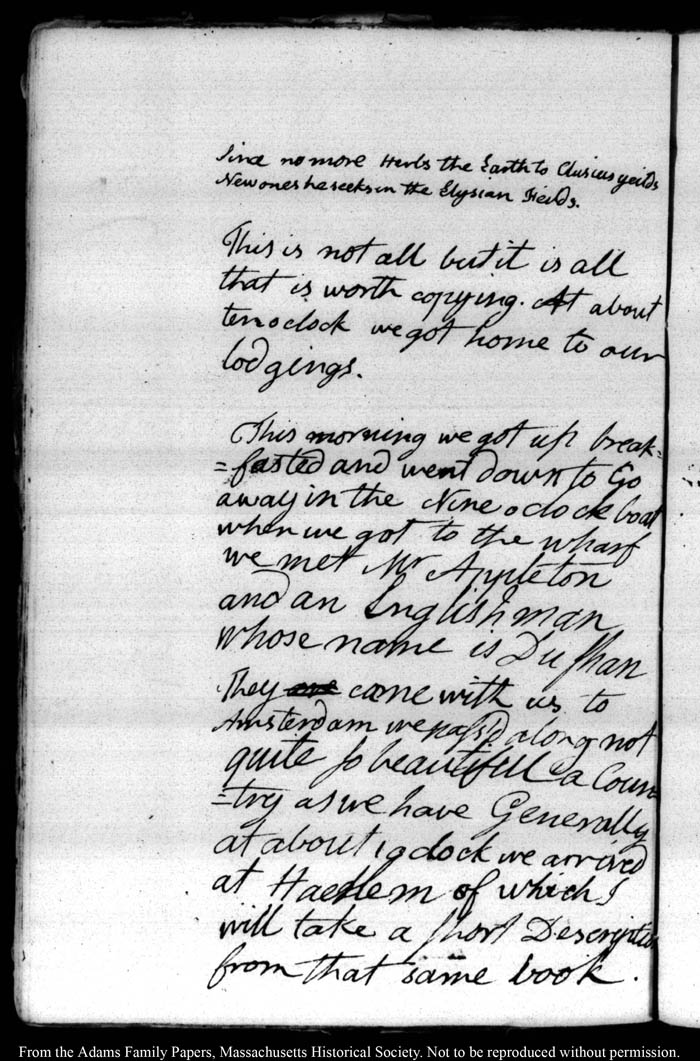 Since no more Herbs the Earth to Clusius yeilds
New ones he seeks in the Elysian Feilds.
This is not all but it is all
that is worth copying. At about
ten oclock we got home to our
lodgings.
This morning we got up break=
=fasted and went down to Go
away in the Nine oclock boat
when we got to the wharf
we met Mr Appleton
and an Englishman
whose name is Dushan
They came with us to
Amsterdam we pass'd along not
quite so beautiful a Coun
=try as we have Generally
at about 1 oclock we arrived
at Haerlem of which I
will take a short Description
from that same book.
From the Adams Family Papers, Massachusetts Historical Society. Not to be reproduced without permission.